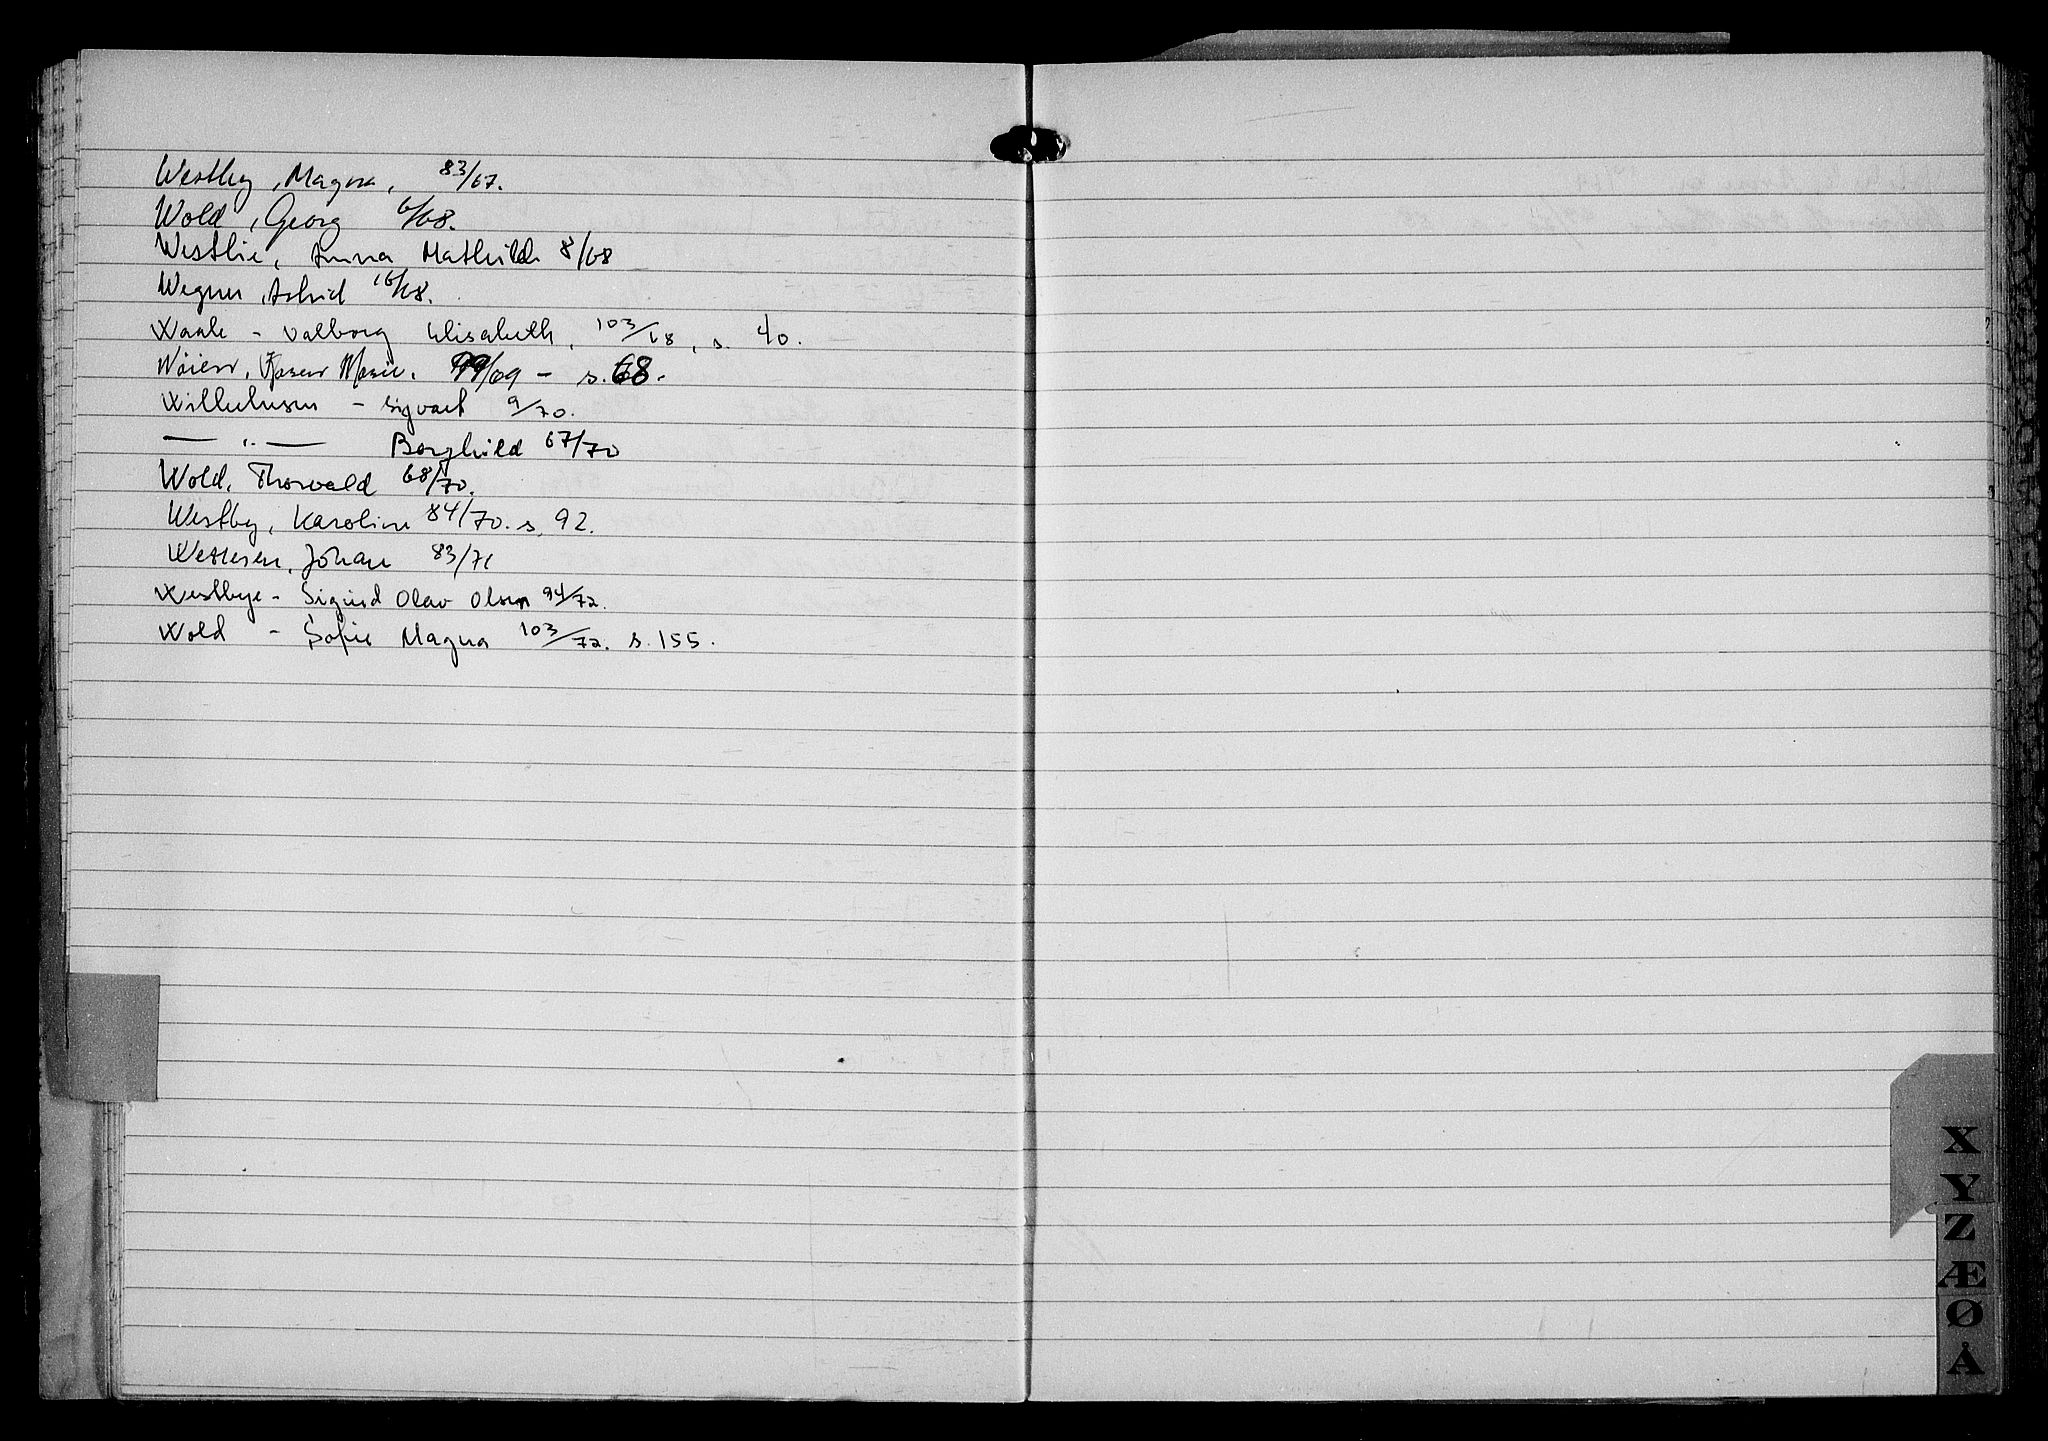 Westby, Magna, 83/67.
Wold, Georg 6/68.
Westlie, Anna Mathilde 8/68
Wegner, Astrid 16/68.
Waale - Valborg Elisabeth, 103/68, s. 40.
Wøien, Karen Marie. 99/69 - s. 68.
Willielmsen - Sigvart 9/70.
— " — Borghild 67/70
Wold, Thorvald 68/70.
Westby, Karoline 84/70. s. 92.
Johan 83/71
Westbye - Sigurd Olav Olsen 94/72.
Wold - Sofie Magna 103/72. s. 155.
X
Y
Z
Æ
Ø
Å